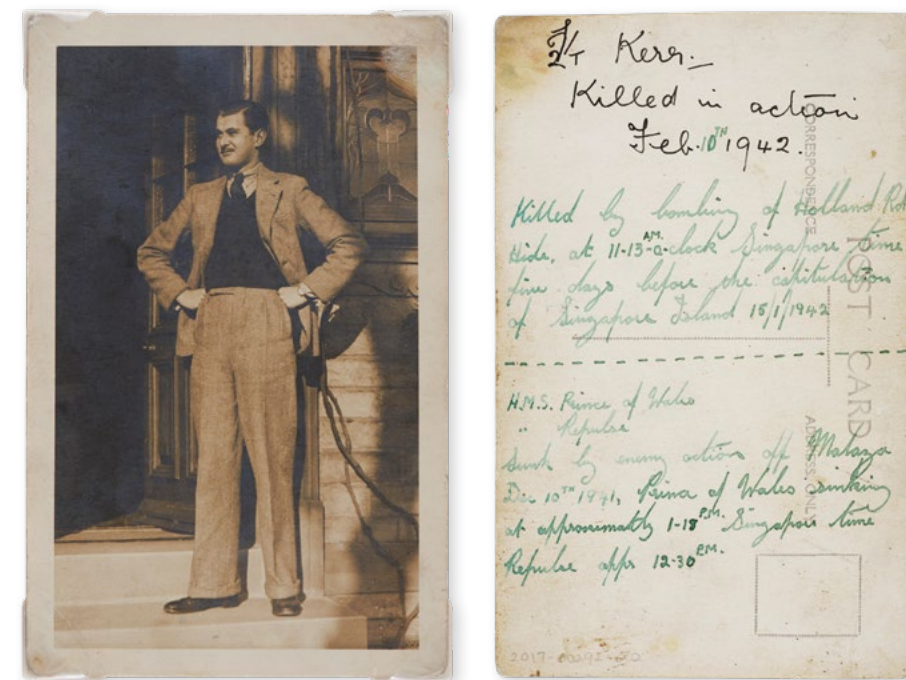 2/Lt Kerr.
Killed in action
Feb. 10TH 1942.
Killed by bombing of Holland Rd
Hide, at 11-13 A.M. o-clock Singapore time
five days before the capitulation
of Singapore Island 15/1/1942
H.M.S. Prince of Wales
" Repulse
Sunk by enemy action off Malaya
Dec 10TH 1941, Prince of Wales sinking
at approximately 1-18 P.M. Singapore time
Repulse appx 12-30 P.M.
CORRESPONDENCE
POST CARD
ADDRESS ONLY
2017-00292-